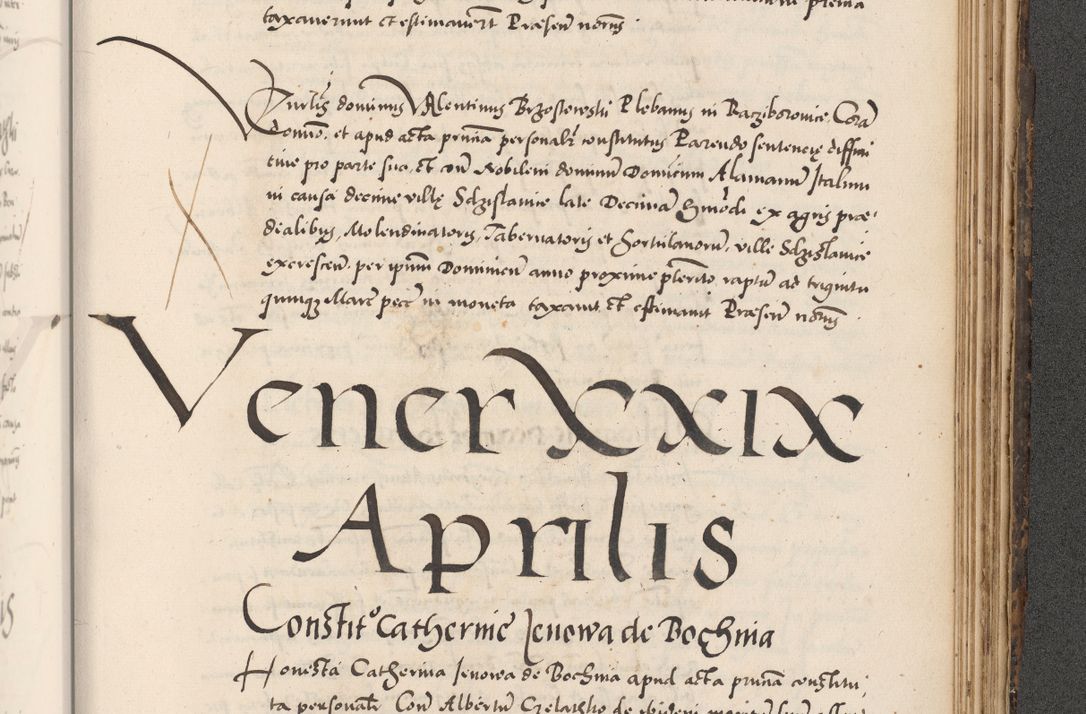 taxaverunt et estimaverūt Præsen̄ nōtis
dominus Valentinus Brzostowski Plebanus in Racziborovice, Corā
domīo, et apud acta p̄ntia personalr̄ constitutus Parendo sententię diffini
tive pro parte sua, et con̄ Nobilem dominū Dominicum Alamanū Italum
in causa decime villę Schzislavice late Decimā ex agris præ
dealibus, Molendinatoris, Tabernatoris et Hortulanorū, ville Schzislavice
excrescen̄. per ipsum Dominicū anno proxime pterito raptū ad triginta
quinq; Marc̄ pecc̄ in moneta taxavit, et estimavit Præsen̄ nōtis
Vener XXIX
Aprilis
Constit° Catherine Jenowa de Bochnia
Honesta Catherina Jenowa de Bochnia apud acta p̄ntia constitu,
ta personalr̄ Con̄ Albertū de ibidem